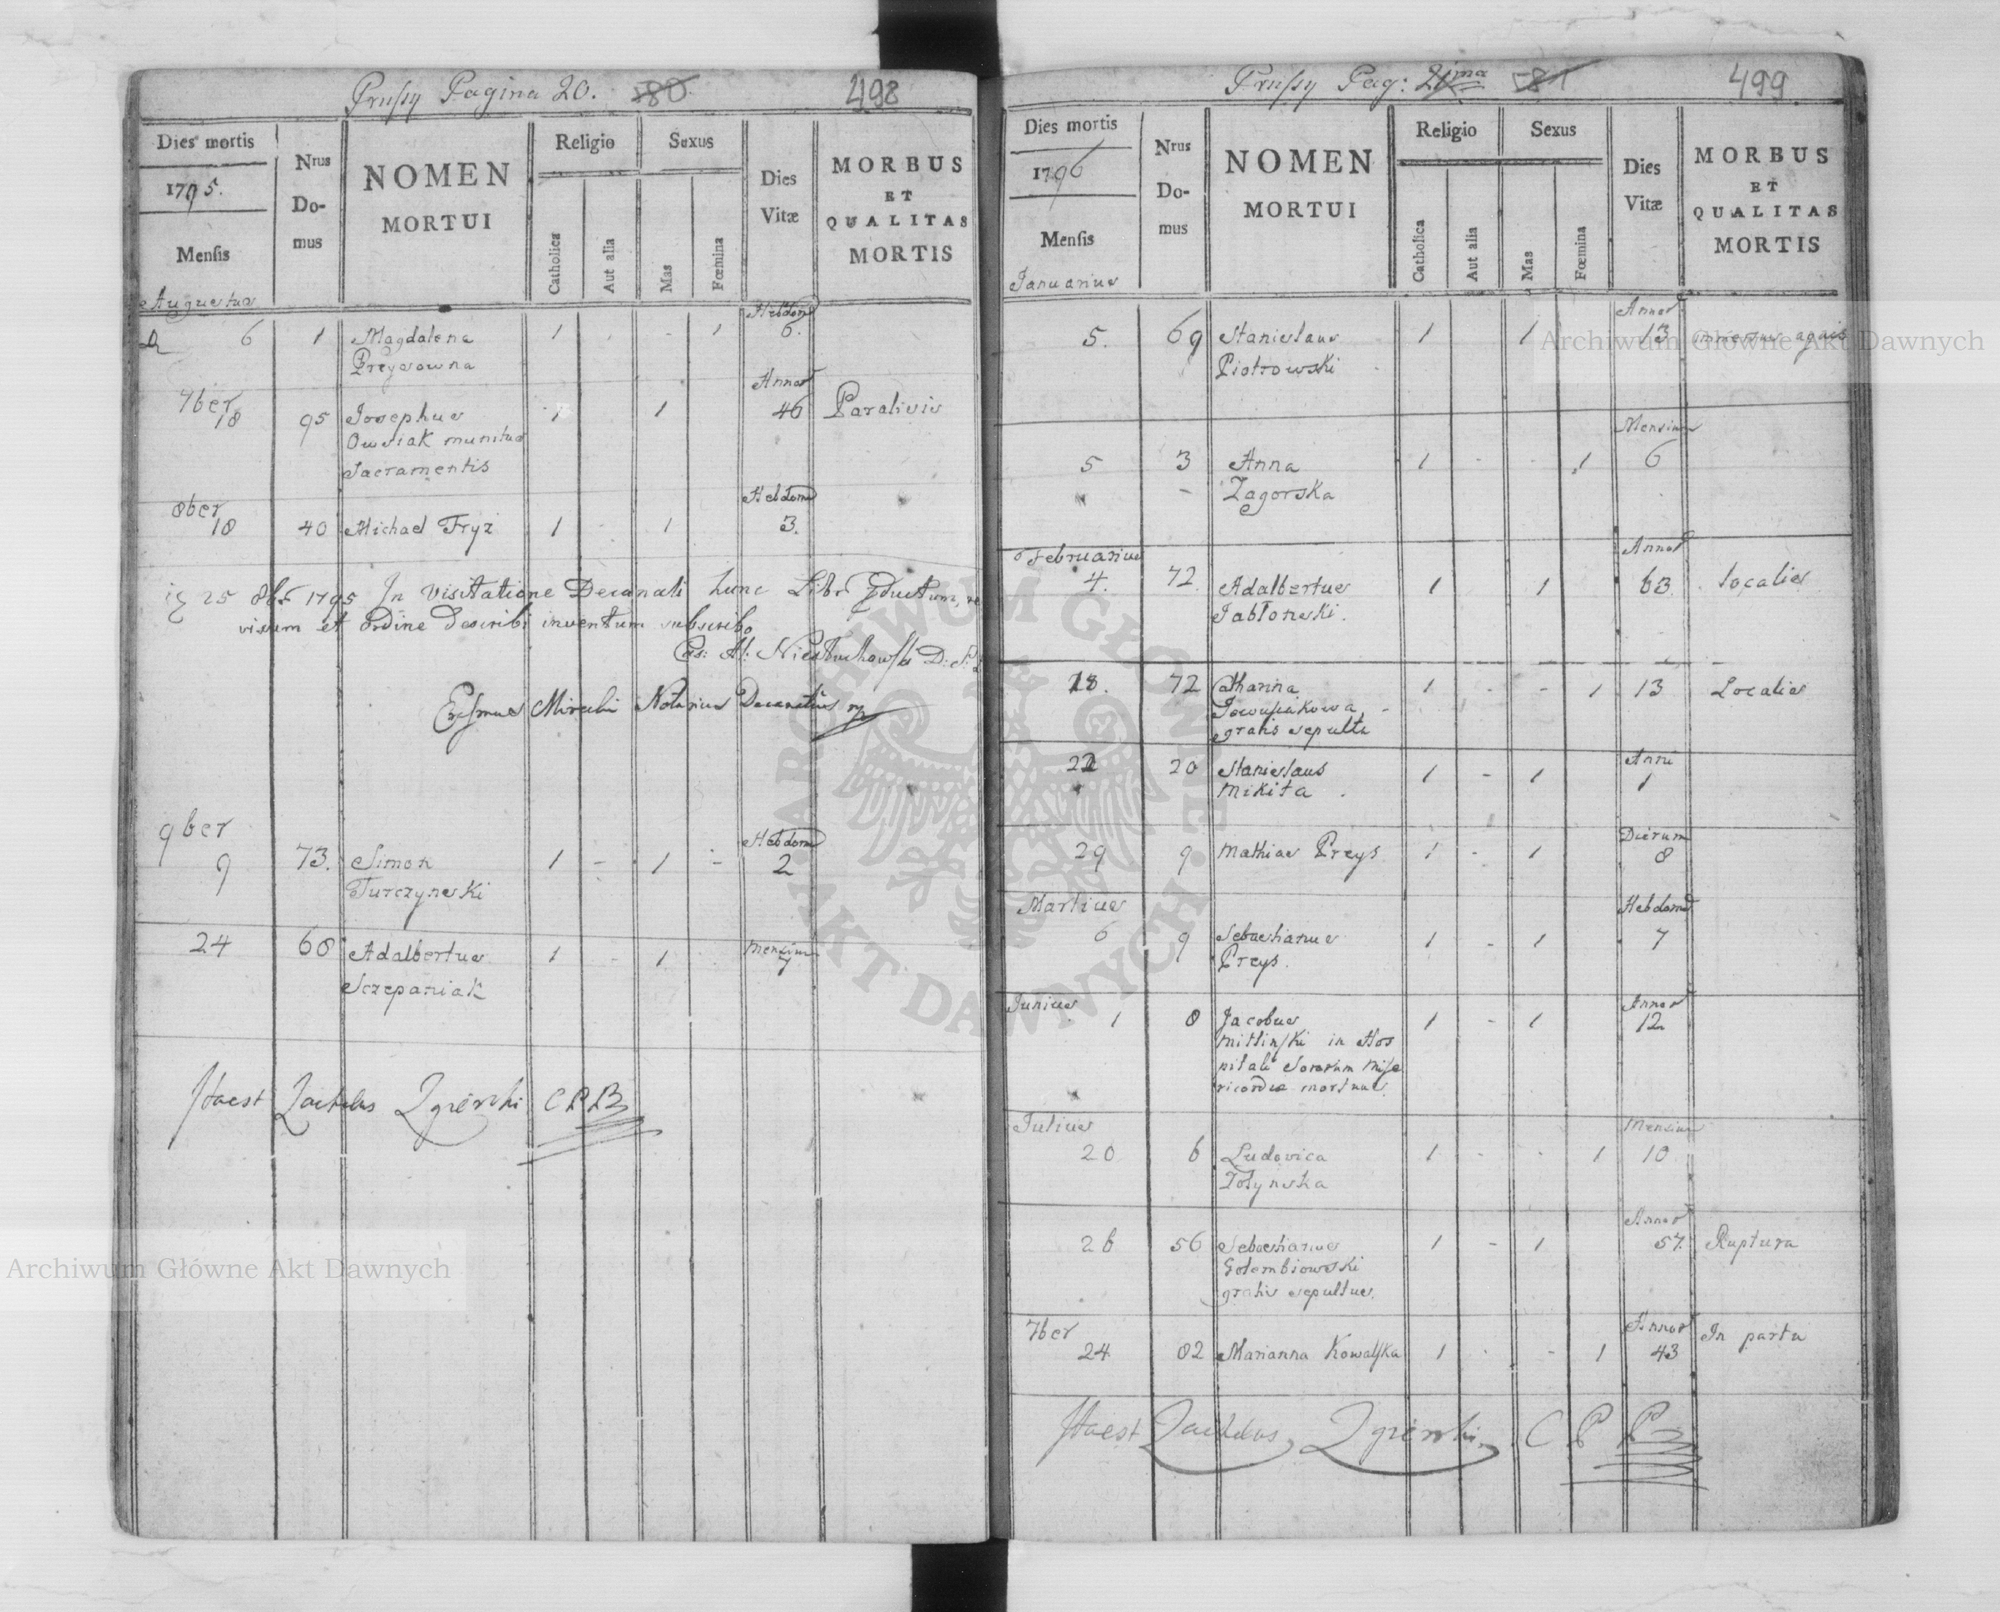 Prussy Pagina 20. 80 498
Dies mortis
1795.
Mensis
Nrus
Do-
mus
NOMEN
MORTUI
Religio
Catholica
Aut alia
Sexus
Mas
Fœmina
Dies
Vitæ
MORBUS
ET
QUALITAS
MORTIS
Augustus
6 1 Magdalena 1 1 Hebdom 6.
Preysowna
7ber
18 95 Josephus 1 1 Annor 46 Paralisis
Owsiak munitus
Sacramentis
8ber
18 40 Michael Fryz 1 - 1 Hebdom 3.
25 8br 1795 In Visitatione Decanali hunc Libr
visum et Ordine describi inventum subscribo
Notarius Decanatus
9ber
9 73. Simon 1 - 1 - Hebdom 2
Turczynski
24 68 Adalbertus 1 - 1 Mensium 7
Sczepaniak
Zgierski
Prussy Pag: 21ma 81 499
Dies mortis
1796
Mensis
Nrus
Do-
mus
NOMEN
MORTUI
Religio
Catholica
Aut alia
Sexus
Mas
Fœmina
Dies
Vitæ
MORBUS
ET
QUALITAS
MORTIS
Januarius
5. 69 Stanislaus 1 1 Annor 13 immersus aquis
Piotrowski
5 3 Anna 1 - - 1 Mensium 6
Zagorska
Februarius
4. 72 Adalbertus 1 1 Annor 63 localis
Jabłonski.
18. 72 Catharina 1 - - 1 13 Localis
gratis sepulta
22 20 Stanislaus 1 - 1 Anni 1
Mikita
29 9 Mathias Preys 1 - 1 Dierum 8
Martius
6 9 Sebastianus 1 - 1 Hebdom 7
Preys.
Junius
1 8 Jacobus 1 - 1 Annor 12
in Hos
pitali Sororum Mise
ricordiæ mortuus
Julius
20 6 Ludovica 1 - - 1 Mensium 10
26 56 Sebastianus 1 - 1 Annor 57. Ruptura
Gołembiowski
gratis sepultus.
7ber
24 82 Marianna Kowalska 1 - - 1 Annor 43 In partu
Zgierski C P P
Archiwum Główne Akt Dawnych
Archiwum Główne Akt Dawnych
ARCHIWUM GŁÓWNE AKT DAWNYCH